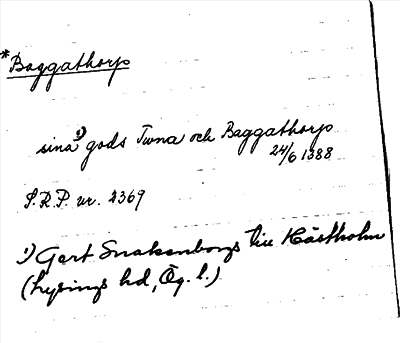 *Baggathorp
sina¹) gods Tuna och Baggathorp
24/6 1388
S.R.P. nr. 2369
¹) Gert Snakenborgs till Hästholm
(Lysings hd, Ög. l.)